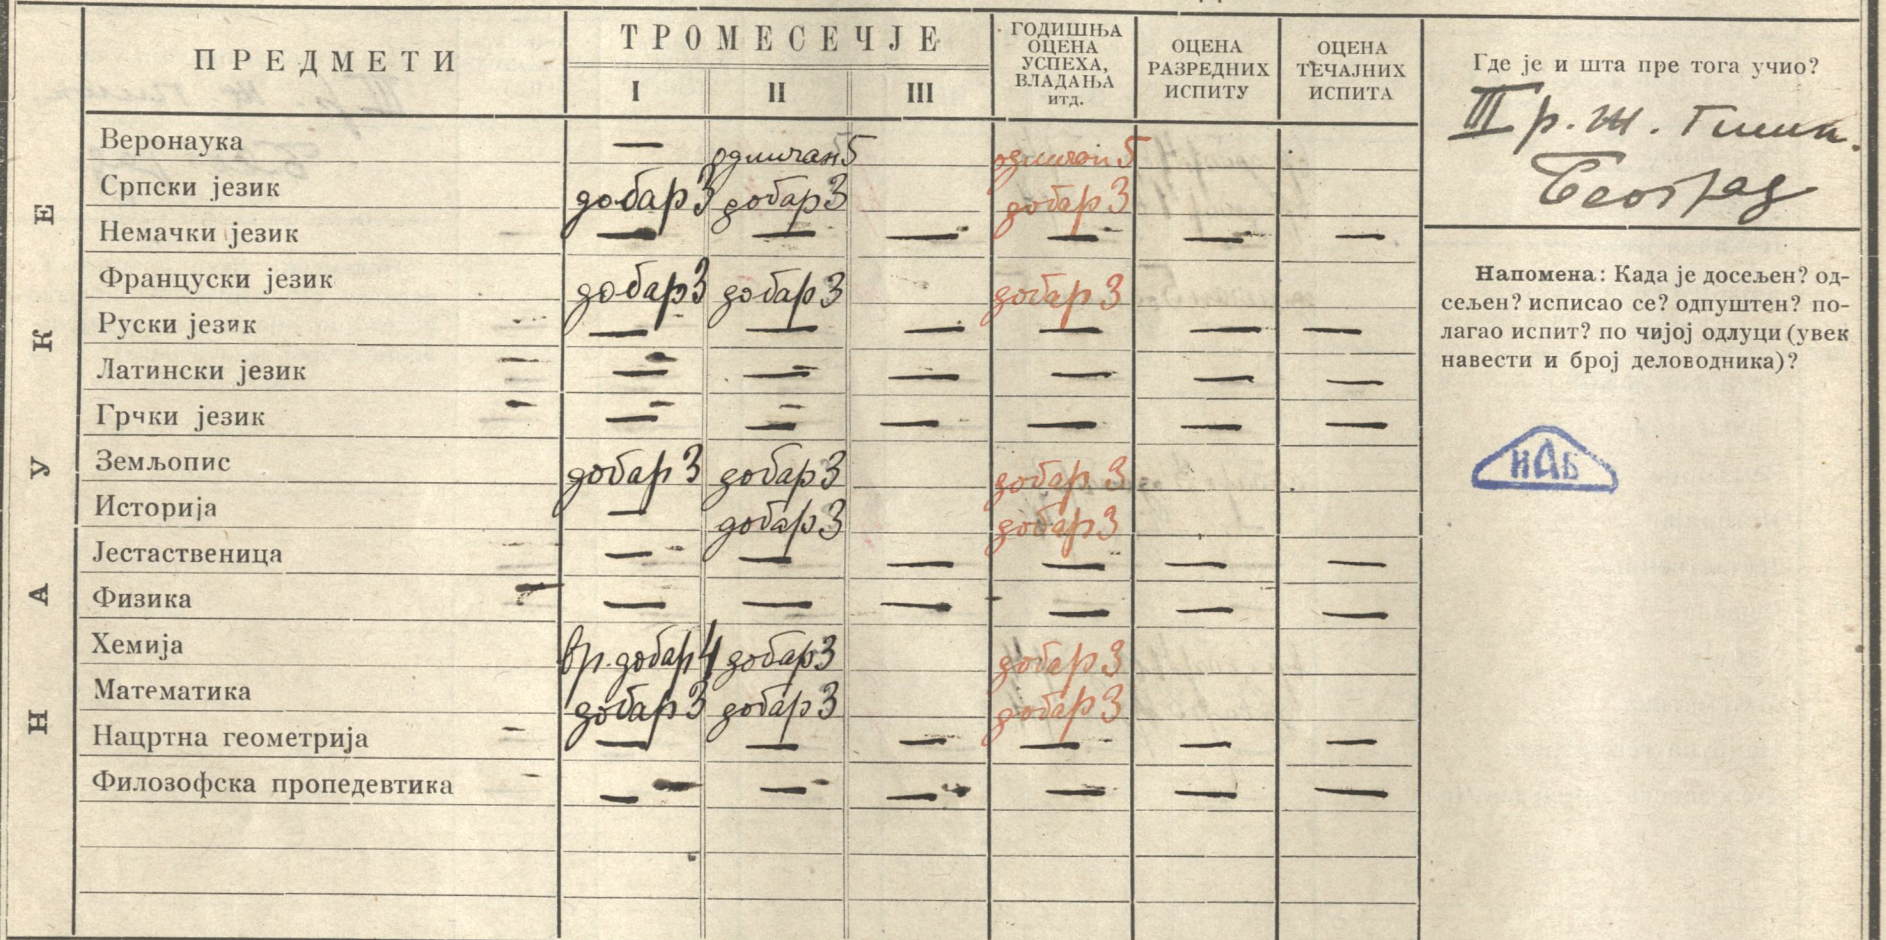 ПРЕДМЕТИ
ТРОМЕСЕЧЈЕ
I II III
ГОДИШЊА ОЦЕНА УСПЕХА, ВЛАДАЊА итд.
ОЦЕНА РАЗРЕДНИХ ИСПИТУ
ОЦЕНА ТЕЧАЈНИХ ИСПИТА
НАУКЕ
Веронаука — одличан 5 одличан 5
Српски језик добар 3 добар 3 добар 3
Немачки језик — — — — — —
Француски језик добар 3 добар 3 добар 3
Руски језик — — — — — —
Латински језик — — — — — —
Грчки језик — — — — — —
Земљопис добар 3 добар 3 добар 3
Историја — добар 3 добар 3
Јестаственица — — — — — —
Физика — — — — — —
Хемија вр. добар 4 добар 3 добар 3
Математика добар 3 добар 3 добар 3
Нацртна геометрија — — — — — —
Филозофска пропедевтика — — — — — —
Где је и шта пре тога учио?
III р. ж. Гимн.
Београд
Напомена: Када је досељен? од-
сељен? исписао се? одпуштен? по-
лагао испит? по чијој одлуци (увек
навести и број деловодника)?
ИАБ